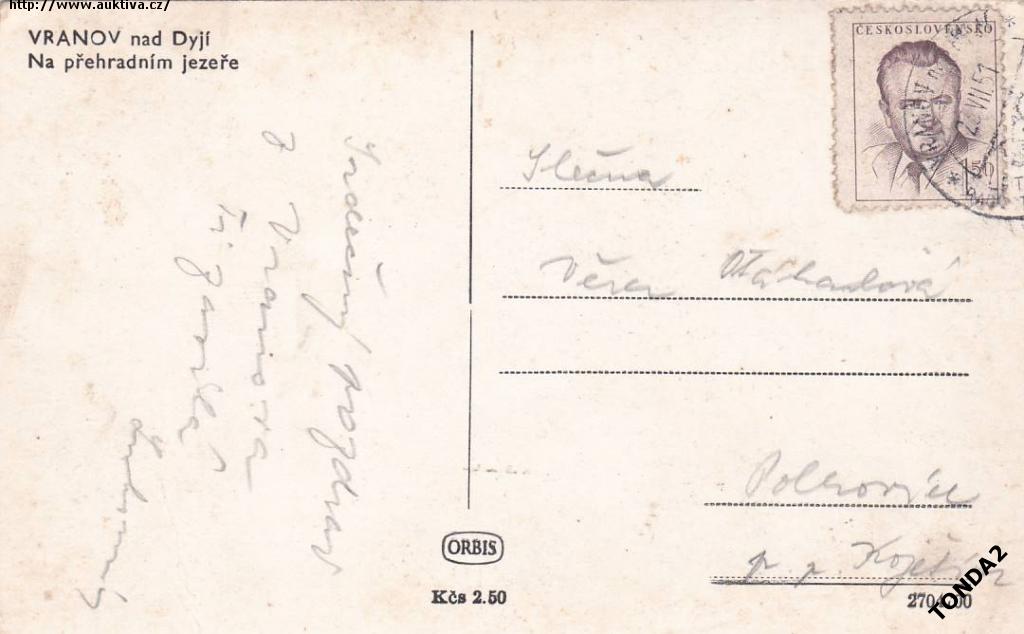 http://www.auktiva.cz/
VRANOV nad Dyjí
Na přehradním jezeře
Srdečný pozdrav
z Vranova
Ti zasílá
ČESKOSLOVENSKO
VII 51
Slečna
Věra
Polkovice
p. p. Kojetín
ORBIS
Kčs 2.50
TONDA2